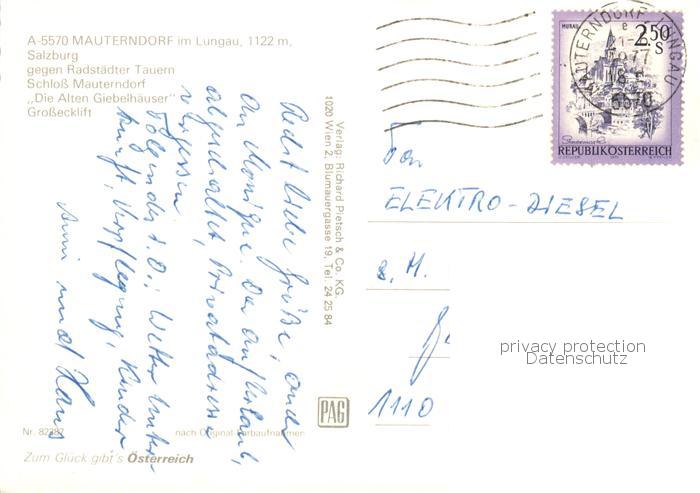 A-5570 MAUTERNDORF im Lungau, 1122 m,
Salzburg
gegen Radstädter Tauern
Schloß Mauterndorf
„Die Alten Giebelhäuser"
Großecklift
Recht liebe Grüße, auch
An Monique. Da auf Urlaub,
abgeschaltet, Privatadresse
vergessen.
Folgendes i. O.: Wetter, Unter-
kunft, Verpflegung, Kinder
Anni und Hans
Verlag: Richard Pietsch & Co. KG.
1020 Wien 2, Blumauergasse 19, Tel. 24 25 84
PAG
MAUTERNDORF LUNGAU
5570
MURAU
2.50
S
REPUBLIK ÖSTERREICH
ELEKTRO-DIESEL
1110
privacy protection
Datenschutz
Nr. 82387 nach Original-Farbaufnahmen
Zum Glück gibt's Österreich